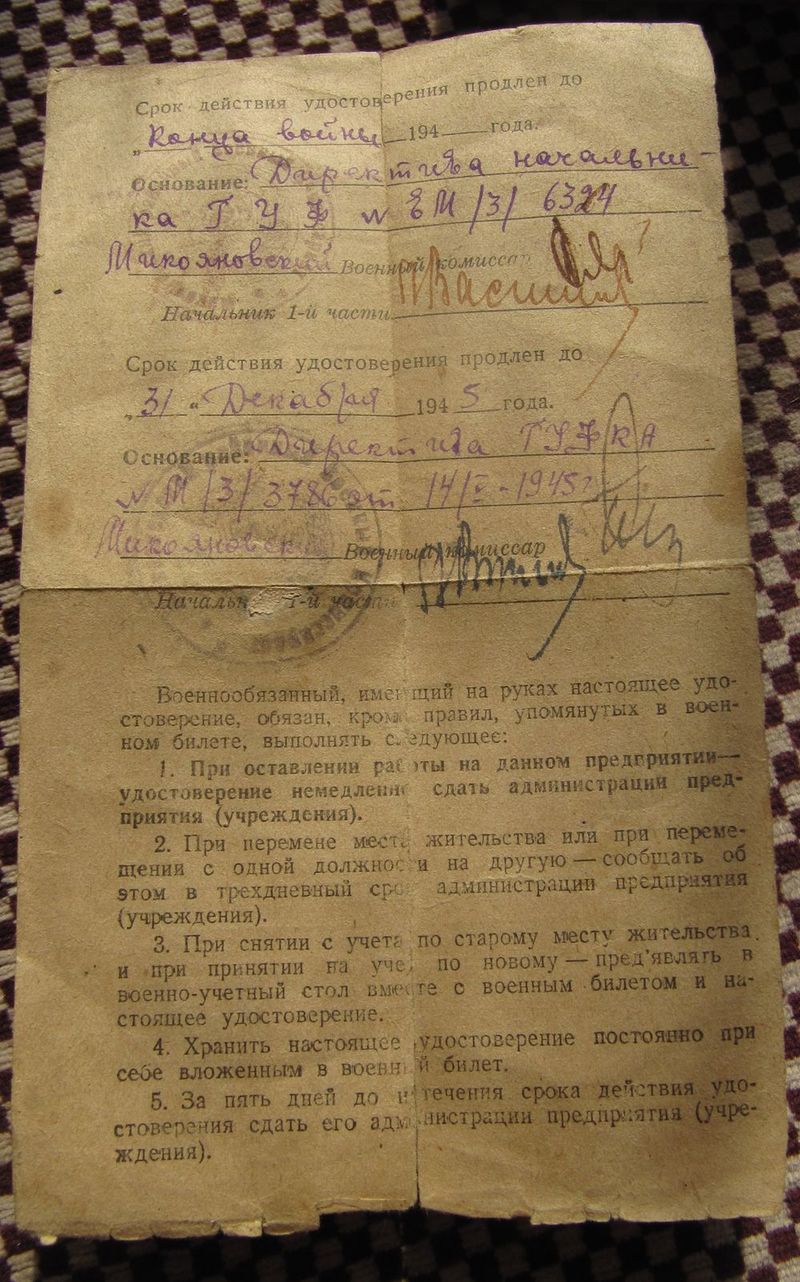 Срок действия удостоверения продлен до
"Конца войны 194 года.
Основание: Директива начальни-
ка ГУФ № ЕМ/3/ 6324
Микояновский Военный комиссар
Начальник 1-й части
Срок действия удостоверения продлен до
"31" Декабря 1945 года.
Основание: Директива ГУФКА
№ М/3/3786 от 14/V-1945г
Микояновский Военный комиссар
Начальник 1-й части
Военнообязанный, имеющий на руках настоящее удо-
стоверение, обязан, кроме правил, упомянутых в воен-
ном билете, выполнять следующее:
1. При оставлении работы на данном предприятии—
удостоверение немедленно сдать администрации пред-
приятия (учреждения).
2. При перемене места жительства или при переме-
щении с одной должности на другую — сообщать об
этом в трехдневный срок администрации предприятия
(учреждения).
3. При снятии с учета по старому месту жительства
и при принятии на учет по новому — пред'являть в
военно-учетный стол вместе с военным билетом и на-
стоящее удостоверение.
4. Хранить настоящее удостоверение постоянно при
себе вложенным в военный билет.
5. За пять дней до истечения срока действия удо-
стоверения сдать его администрации предприятия (учре-
ждения).